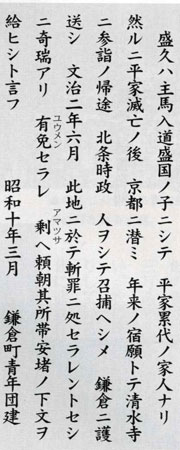 盛久ハ主馬入道盛国ノ子ニシテ 平家累代ノ家人ナリ
然ルニ平家滅亡ノ後 京都ニ潜ミ 年来ノ宿願トテ清水寺
ニ参詣ノ帰途 北条時政 人ヲシテ召捕ヘシメ 鎌倉ニ護
送シ 文治二年六月 此地ニ於テ斬罪ニ処セラレントセシ
ニ奇瑞アリ 宥免セラレ 剰ヘ頼朝其所帯安堵ノ下文ヲ
ユウメン
アマツサ
給ヒシト言フ 昭和十年三月 鎌倉町青年団建